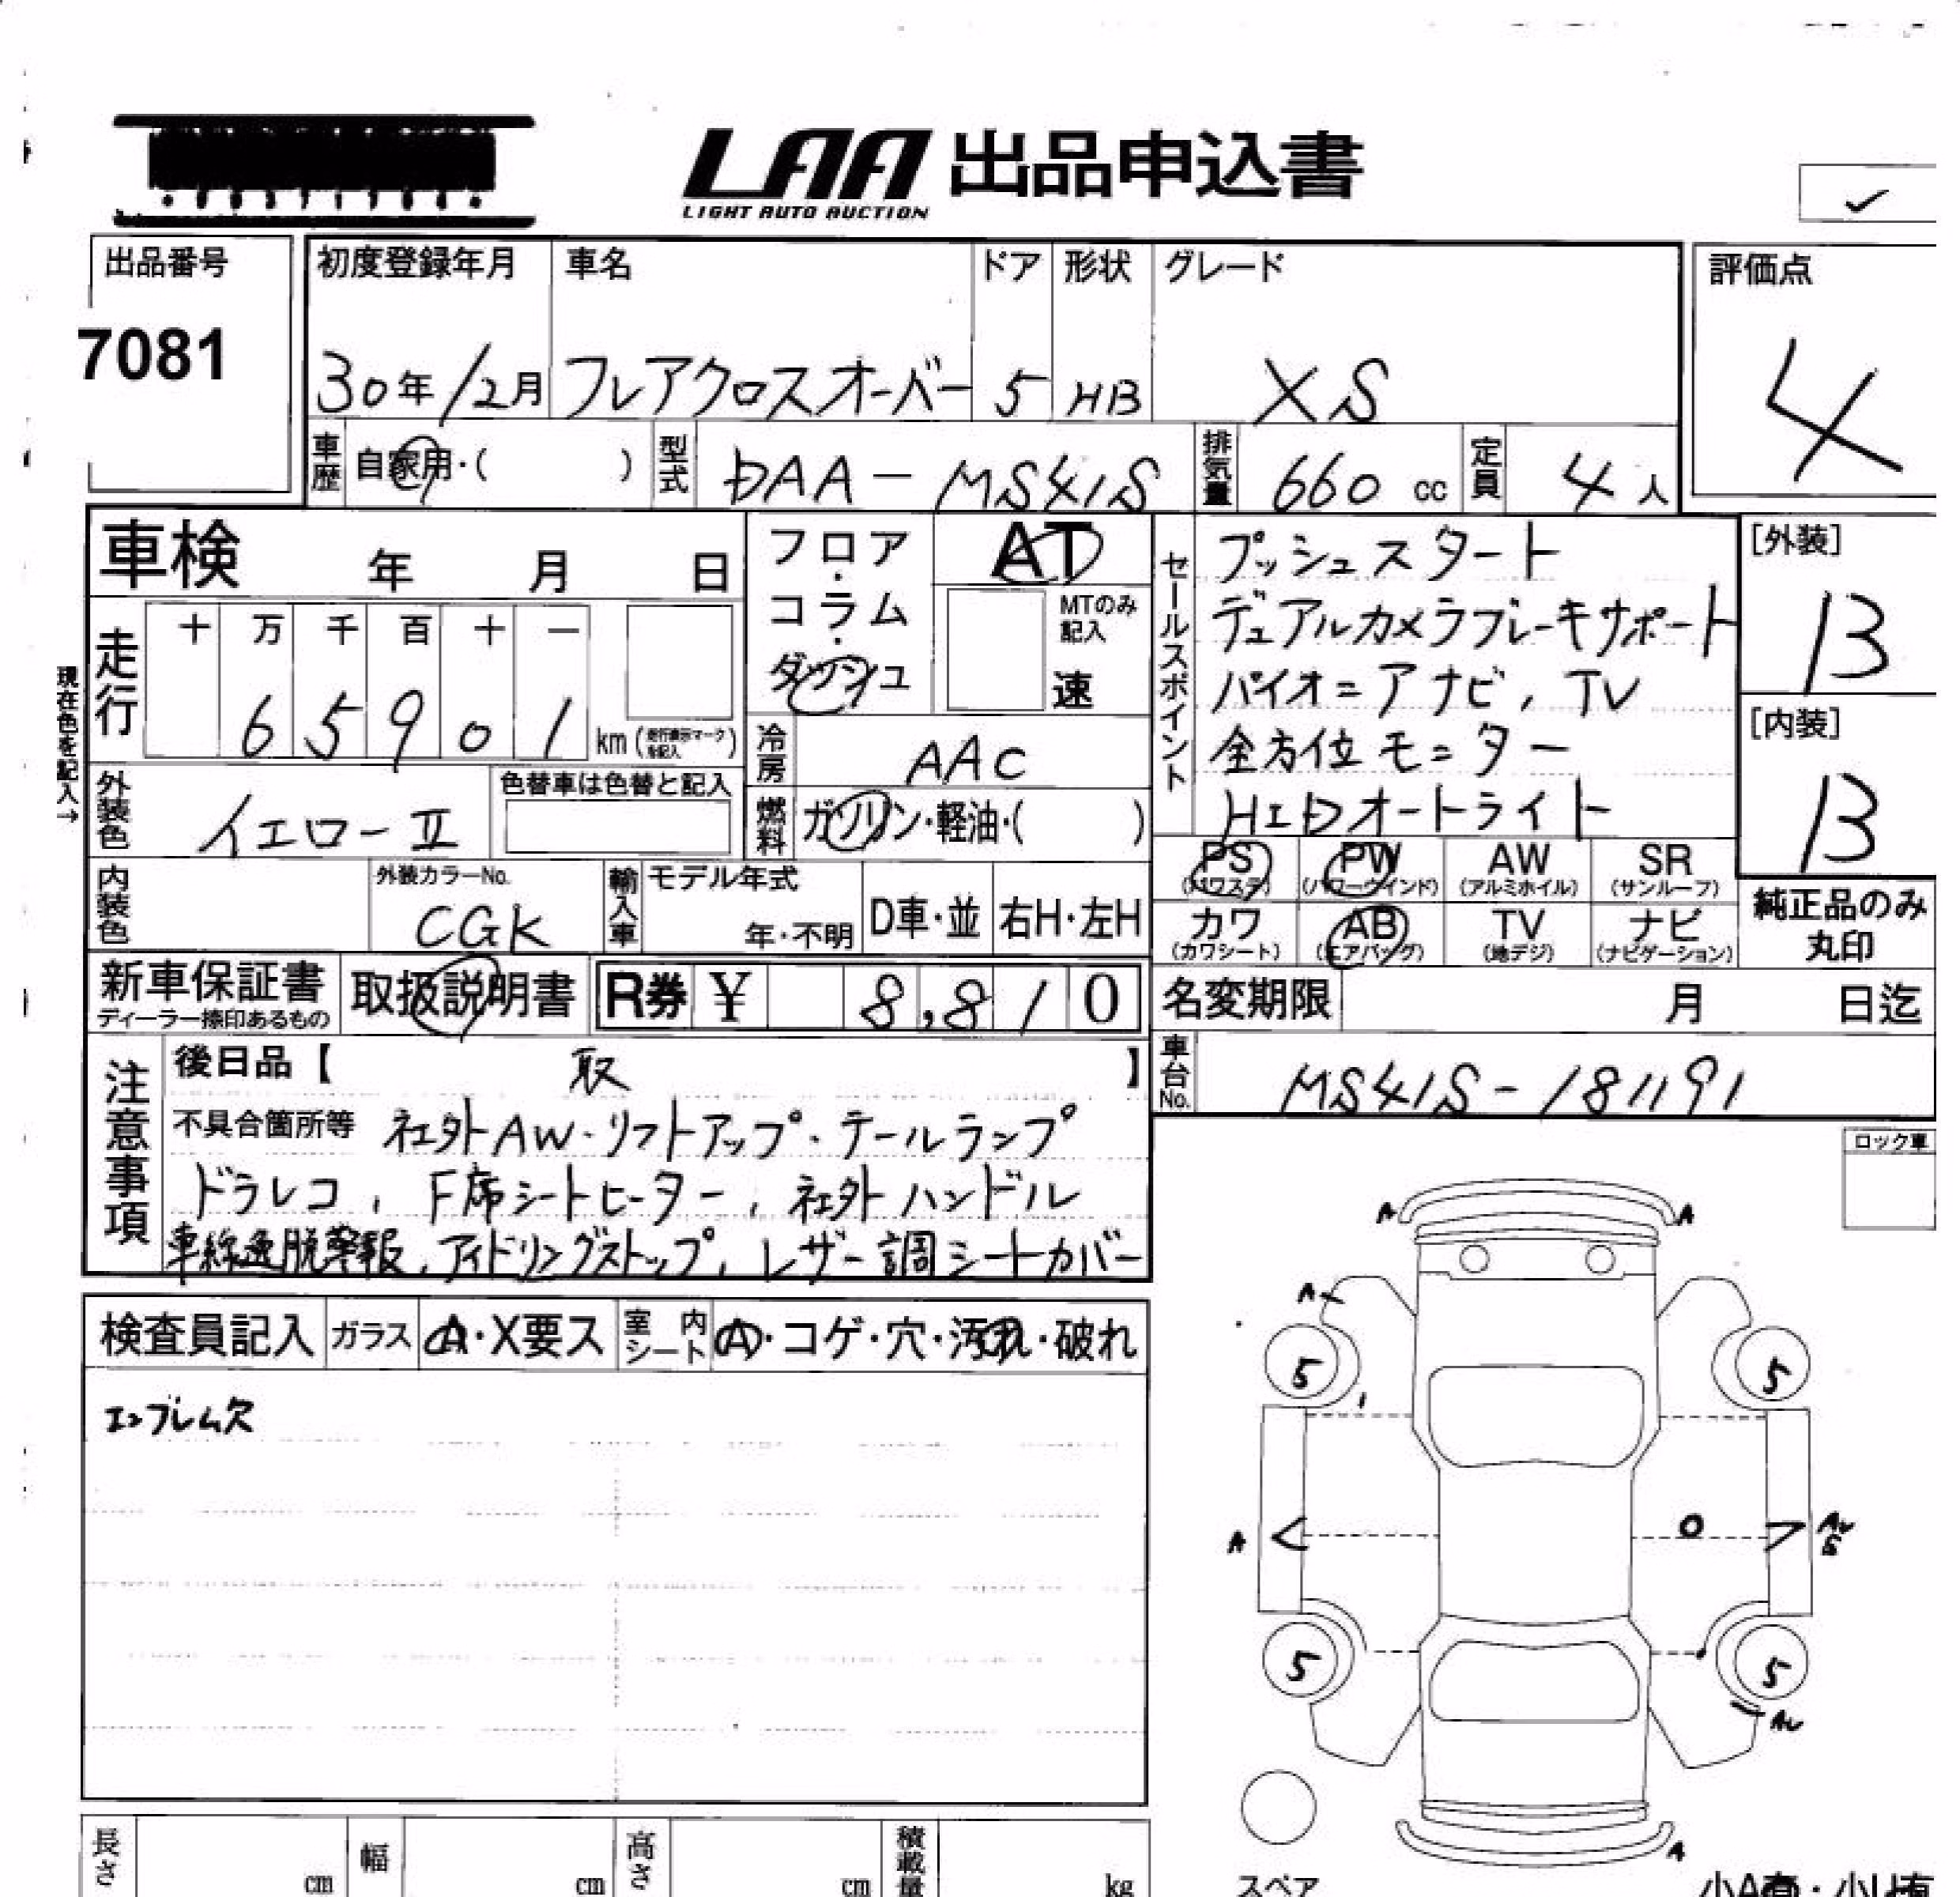 LAA 出品申込書
LIGHT AUTO AUCTION
出品番号 7081
初度登録年月 30年12月
車名 フレアクロスオーバー
ドア 5
形状 HB
グレード XS
評価点 4
車歴 自家用・( )
型式 DAA-MS41S
排気量 660 cc
定員 4人
車検 年 月 日
フロア・コラム・ダッシュ
AT
MTのみ記入
速
セールスポイント
プッシュスタート
デュアルカメラブレーキサポート
パイオニアナビ, TV
全方位モニター
HIDオートライト
[外装] B
[内装] B
現在色を記入→
走行 十 万 千 百 十 一
65901 km (走行表示マークを記入)
冷房 AAC
外装色 イエローⅡ
色替車は色替と記入
燃料 ガソリン・軽油・( )
PS (パワステ)
PW (パワーウインド)
AW (アルミホイル)
SR (サンルーフ)
カワ (カワシート)
AB (エアバッグ)
TV (地デジ)
ナビ (ナビゲーション)
純正品のみ丸印
内装色
外装カラーNo. CGK
輸入車
モデル年式 年・不明
D車・並
右H・左H
新車保証書
ディーラー捺印あるもの
取扱説明書
R券 ¥ 8,810
名変期限 月 日迄
注意事項
後日品【 取 】
車台No. MS41S-181191
不具合箇所等 社外AW・リフトアップ・テールランプ
ドラレコ, F席シートヒーター, 社外ハンドル
車線逸脱警報, アイドリングストップ, レザー調シートカバー
ロック車
検査員記入 ガラス A・X要ス
室内シート A・コゲ・穴・汚れ・破れ
エンブレム欠
A A
A
5 5
A
5 5
A
長さ cm
幅 cm
高さ cm
積載量 kg
スペア